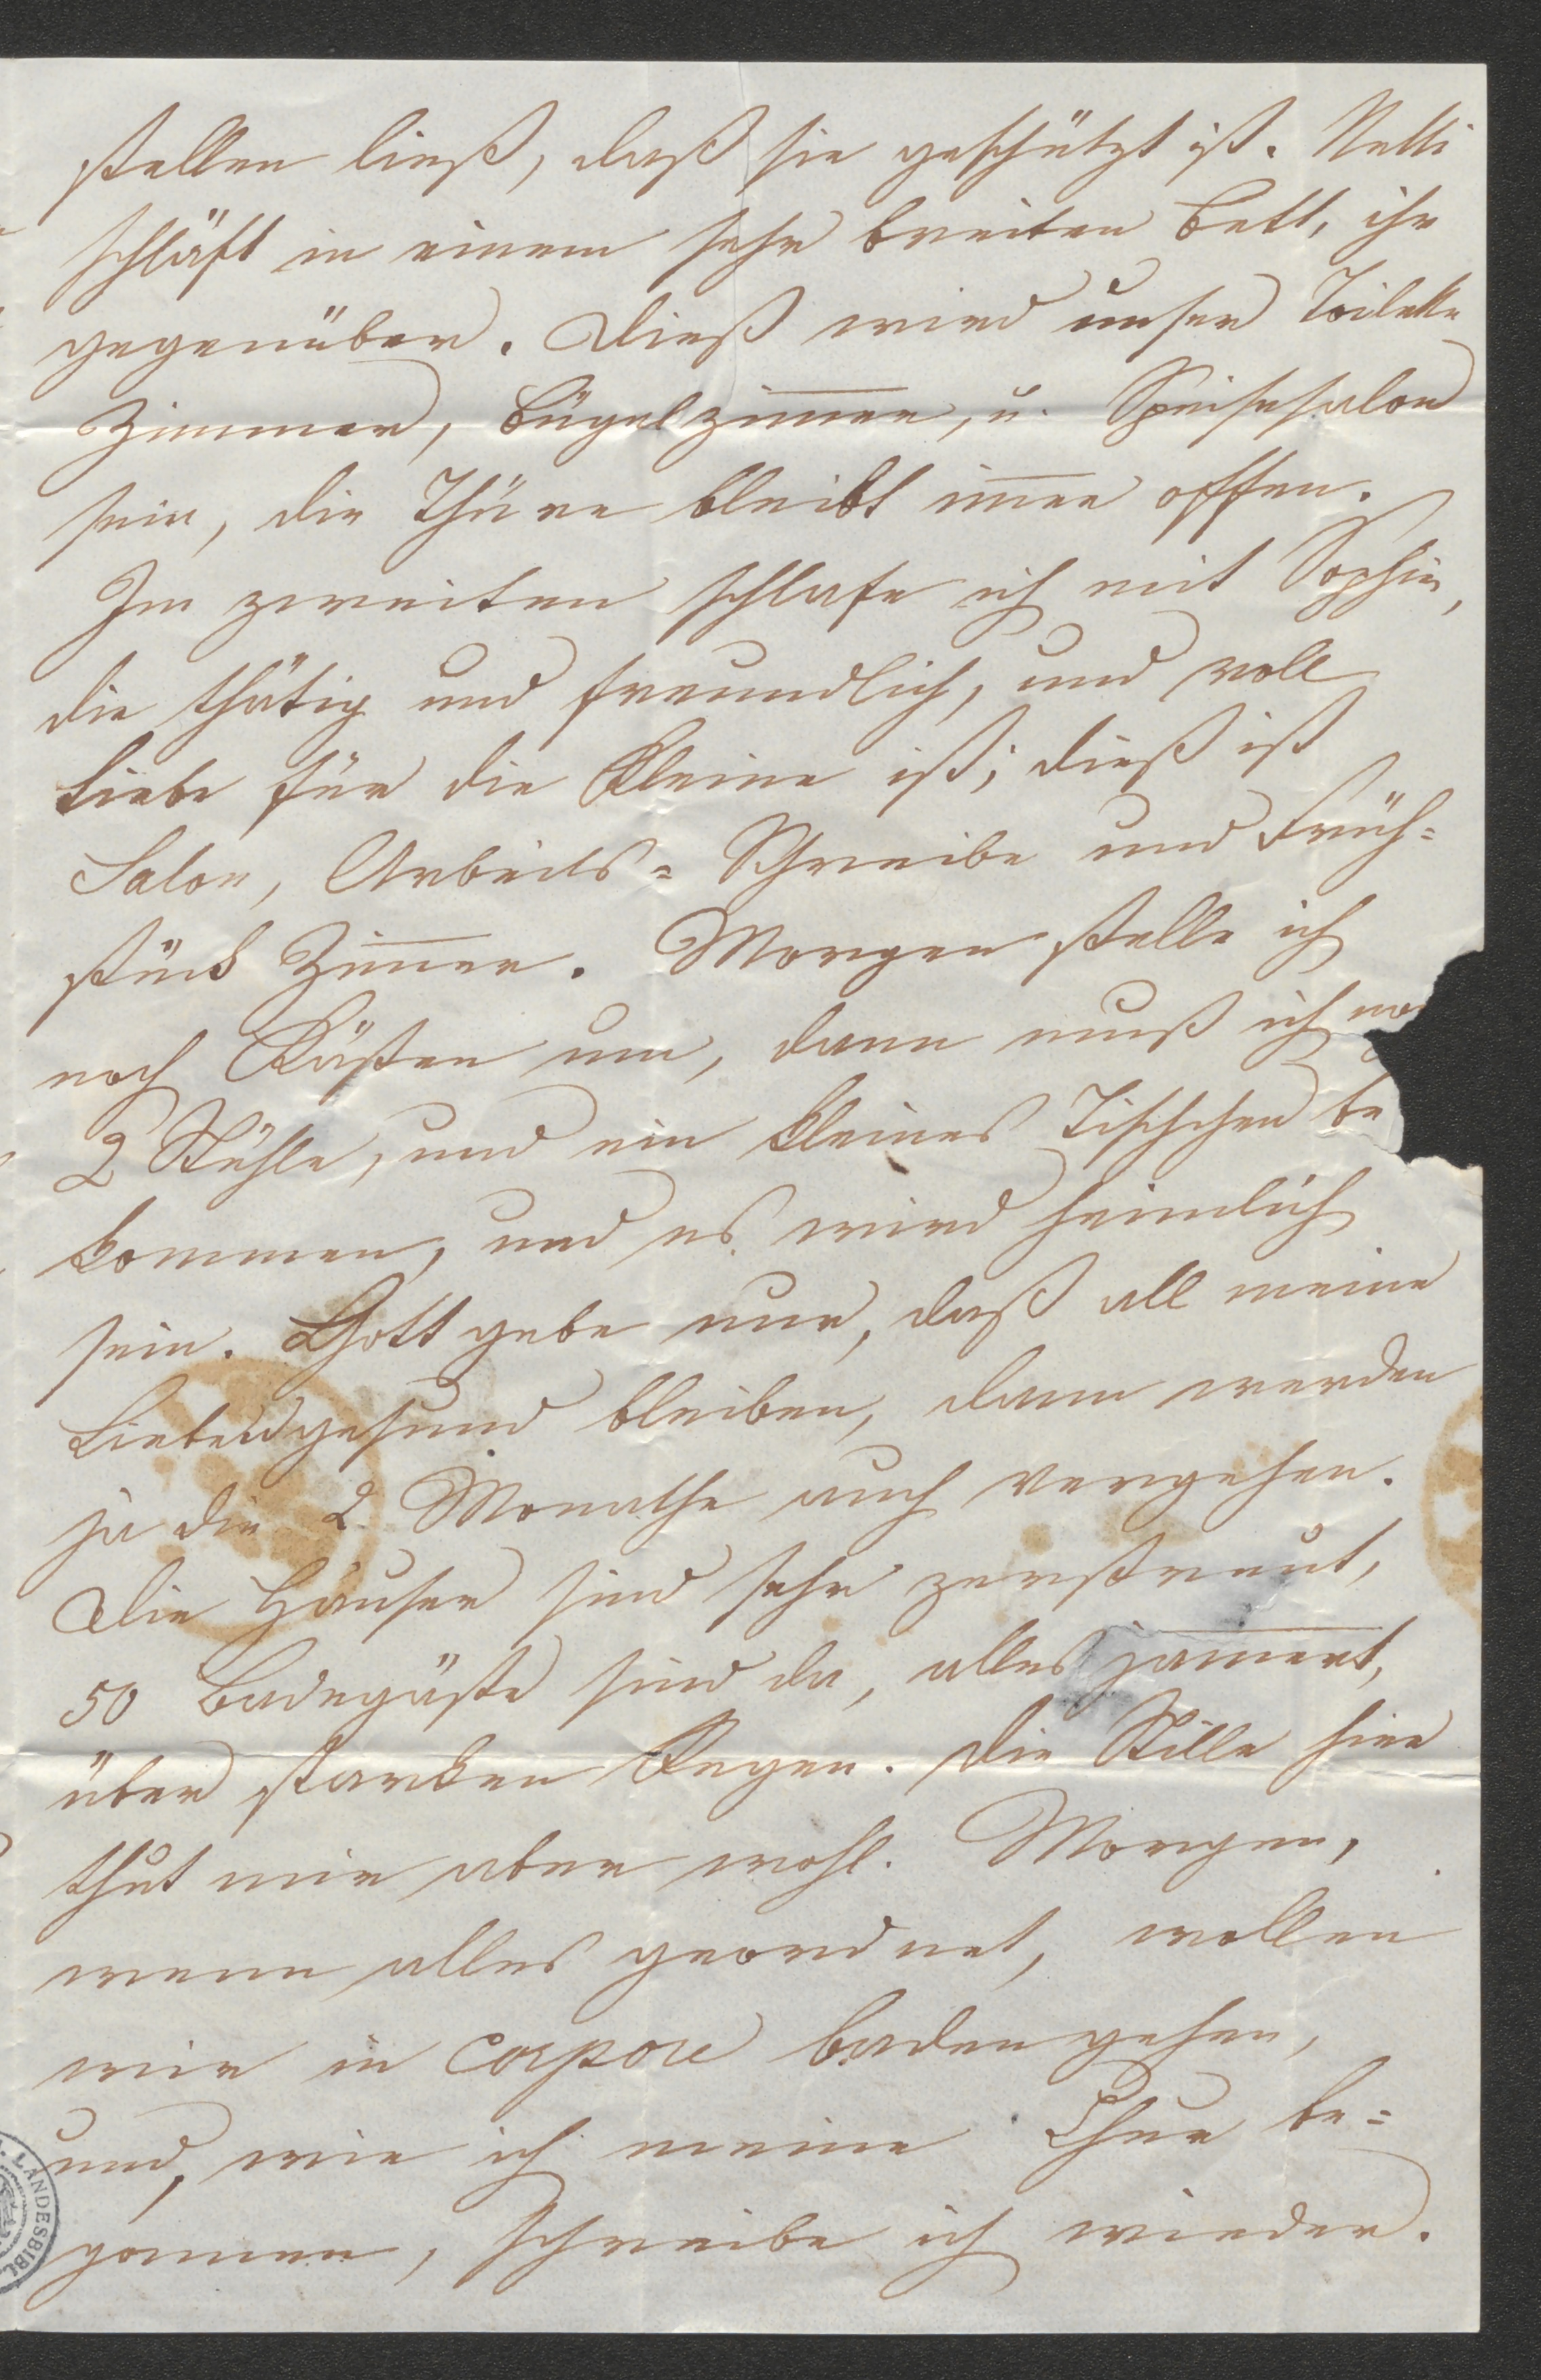 stellen ließ, daß sie geschützt ist. Netti
schläft in einem sehr breiten Bett, ihr
gegenüber. Dieß wird unser Toilette
Zimmer, Bügelzim̅er, u. Speisesalon
sein, die Thüre bleibt im̅er offen.
Im zweiten schlafe ich mit Sophie,
die thätig und freundlich, und voll
Liebe für die Kleine ist; dieß ist
Salon, Arbeits= Schreibe und Früh=
stück Zim̅er. Morgen stelle ich
noch Kästen um, dann muß ich no
2 Stühle, und ein kleines Tischchen be
kommen, und es wird heimlich
sein. Gott gebe nur, daß all meine
Lieben gesund bleiben, dann werden
ja die 2 Monathe auch vergehen.
Die Häuser sind sehr zerstreut,
50 Badegäste sind da, alles jam̅ert,
über starken Regen. Die Stille hier
thut mir aber wohl. Morgen,
wenn alles geordnet, wollen
wir in corpore baden gehen,
und, wie ich meine Chur be=
gonnen, schreibe ich wieder.
LANDESBIBL